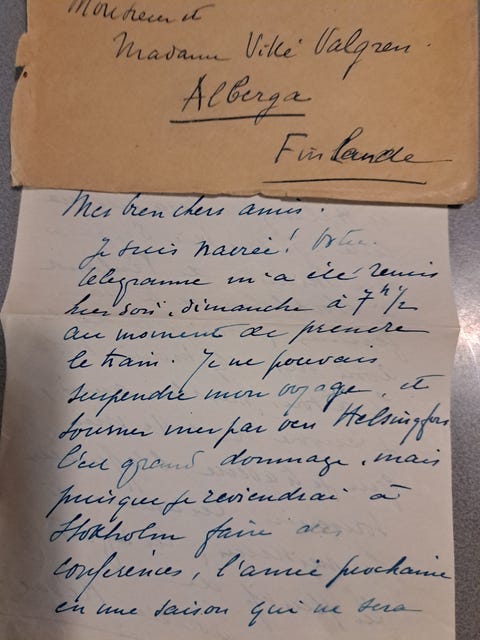 Monsieur et
Madame Villé Valgren.
Alberga
Finlande
Mes bien chers amis.
Je suis navrée! Votre
télégramme m'a été remis
hier soir, dimanche à 7 h 1/2
au moment de prendre
le train. Je ne pouvais
suspendre mon voyage, et
tourner mes pas vers Helsingfors
C'est grand dommage, mais
puisque je reviendrai à
Stokholm faire des
conférences, l'année prochaine
en une saison qui ne sera